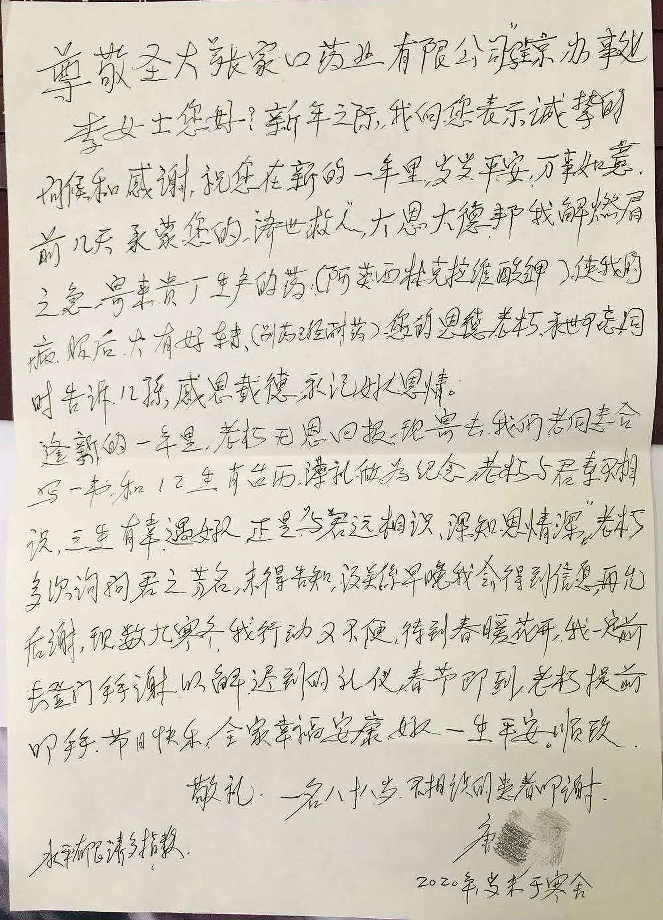 尊敬圣大张家口药业有限公司"驻京办事处
李女士您好?新年之际,我向您表示诚挚的
问候和感谢,祝您在新的一年里,岁岁平安,万事如意.
前几天承蒙您的,济世救人,大恩大德帮我解燃眉
之急,寄来贵厂生产的药.(阿莫西林克拉维酸钾)使我的
病.服后.大有好转,您的恩德老朽,永世不忘,同
时告诉.儿孙,感恩戴德,永记好人恩情。
逢新的一年里,老朽无恩回报,现寄去,我们老同志合
写一书,和12生肖台历.薄礼做为纪念,老朽与君素不相
识,三生有幸,遇好人正是"与君远相识,深知恩情深",老朽
多次询问君之芳名,未得告知,没关系早晚我会得到信息,再允
后谢,现数九寒冬,我行动又不便,待到春暖花开,我一定前
去登门拜谢以解迟到的礼仪,春节即到,老朽提前
叩拜.节日快乐,全家幸福安康好人一生平安。顺致
敬礼.一名八十八岁.不相识的患者叩谢.
唐
水平有限请多指教.
2020年岁末于寒舍